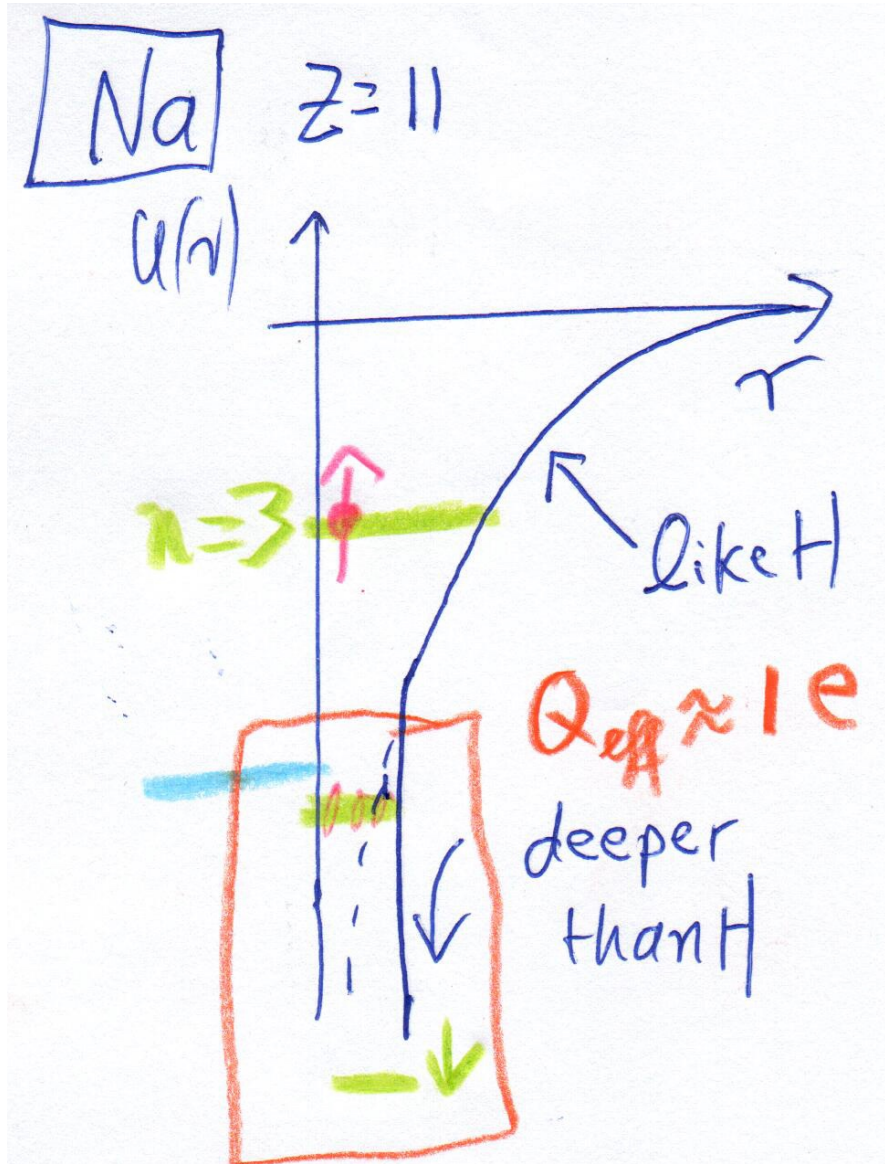 Na Z=11
U(r)
r
n=3
like H
Qeff ≈ 1e
deeper
than H